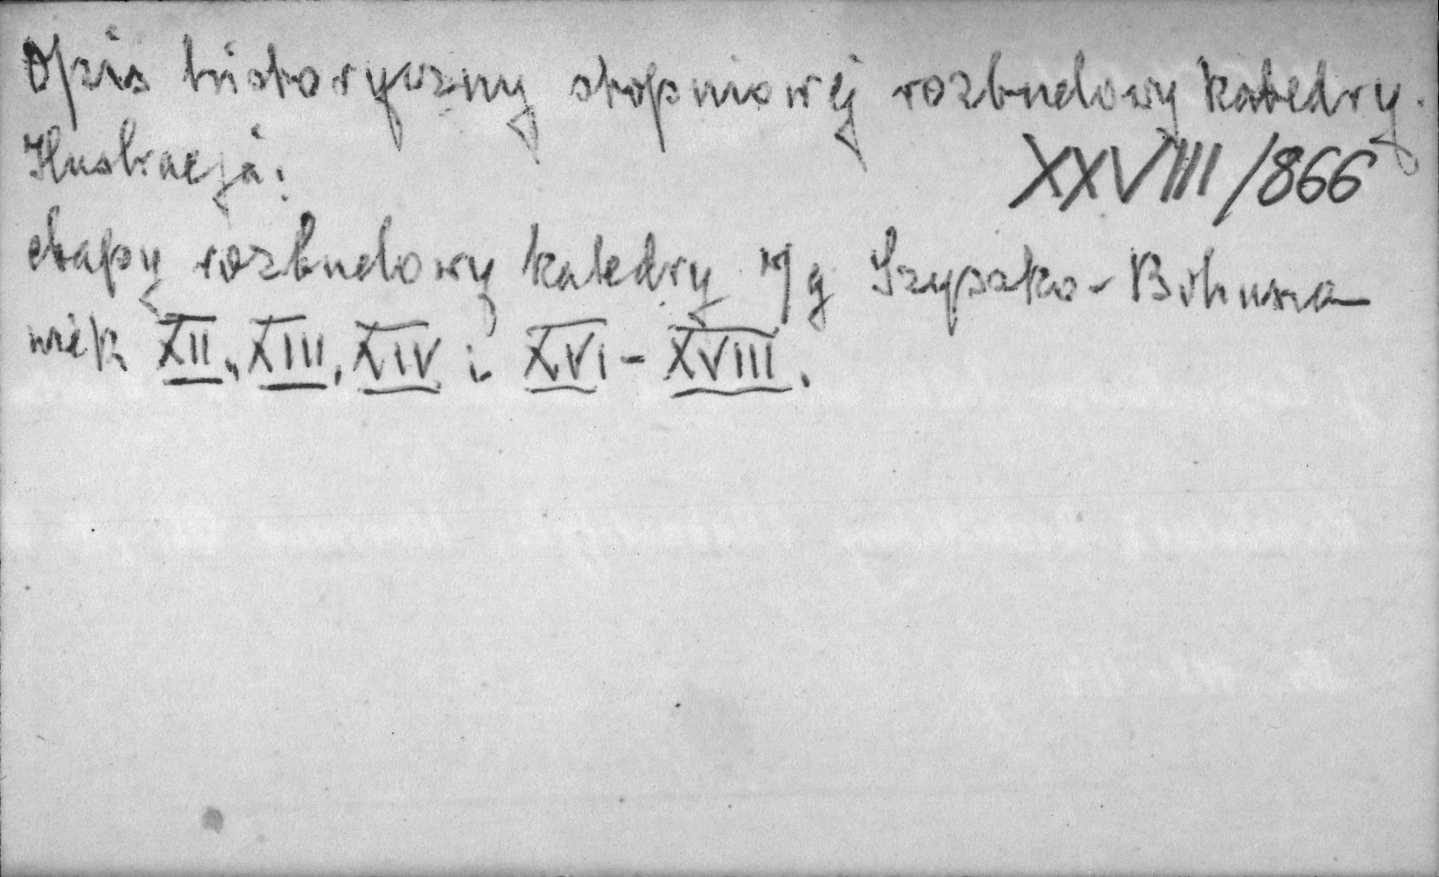 Opis historyczny stopniowej rozbudowy katedry.
Ilustracja:
XXVIII/866
etapy rozbudowy katedry w/g Szyszko-Bohusza
wiek XII, XIII, XIV i XVI - XVIII.